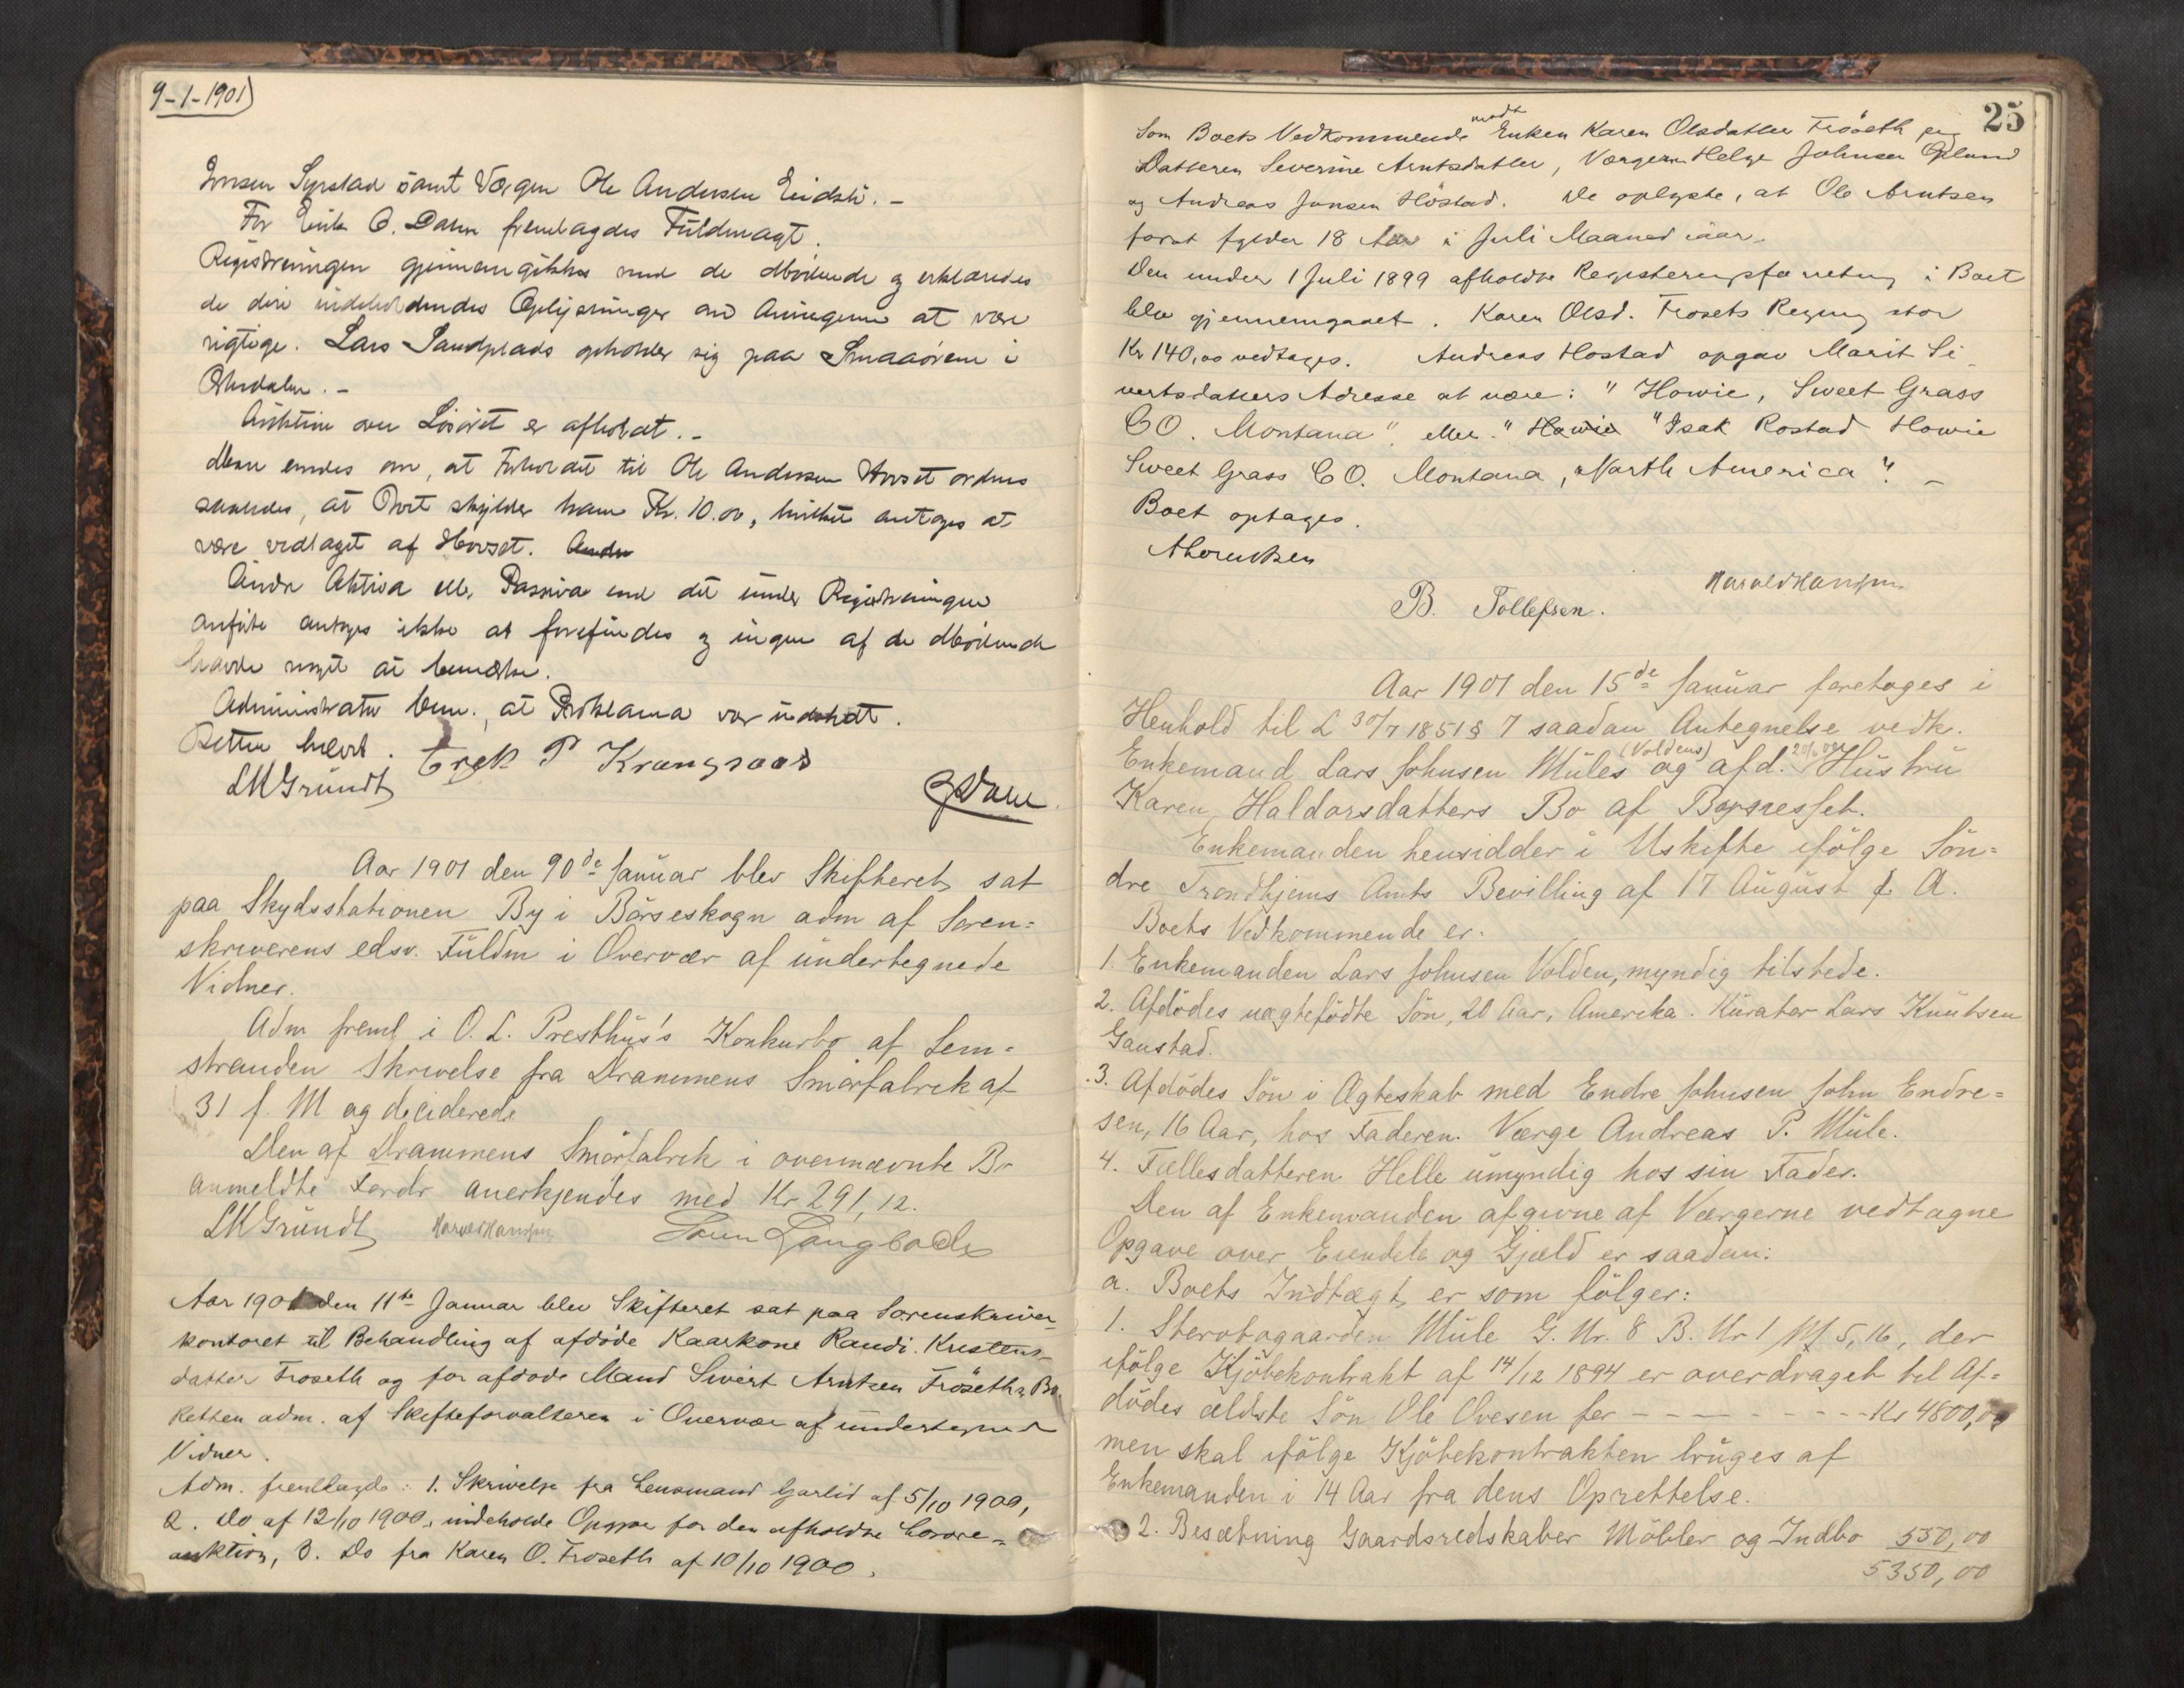 9-1-1901)
Jonsen Syrstad samt Værgen Ole Andersen Eidsli. -
For Erik O. Dahn fremlagdes Fuldmagt.
Registreringen gjennemgikkes med de Mødende og erklæredes
de deri indeholdendes Oplysninger om Arvingerne at være
rigtige. Lars Sandplads opholder sig paa Smaaøren i
Orkedalen. -
Auktion over Løsøret er afholdt. -
Man enedes om, at Forholdet til Ole Andersen Hovset ordnes
saaledes, at Boet skylder ham Kr. 10.00, hvilket antoges at
være vedtaget af Hovset. Andre
Andre Aktiva ell. Passiva end det under Registreringen
anførte antoges ikke at forefindes og ingen af de Mødende
havde noget at bemærke.
Administrator bem., at Proklama var udstedt.
Retten hævet.
LMGrundt Erek P Krangsaas
Aar 1901 den 90de Januar blev Skifteret sat
paa Skydsstationen By i Börseskogn adm af Soren=
skriverens edsv. Fuldm i Overvær af undertegnede
Vidner.
Adm freml i O. L. Presthus's Konkursbo af Lem=
stranden Skrivelse fra Drammens Smörfabrik af
31 f. M og deciderede
Den af Drammens Smörfabrik i ovennævnte Bo
anmeldte Fordr anerkjendes med Kr 291,12.
LMGrundt Harald Hansen Soren Langbakk
Aar 1901 den 11te Januar blev Skifteret sat paa Sorenskriver-
kontoret til Behandling af afdøde Kaarkone Randi Kristens-
datter Froseth og før afdøde Mand Sivert Arntsen Fröseths Bo.
Retten adm. af Skifteforvalteren i Overvær af undertegnede
Vidner.
Adm. fremlagde: 1. Skrivelse fra Lensmand Garlid af 5/10 1900,
2. Do af 12/10 1900, indeholde Opgave for den afholdte Løsøre-
auktion, 3. Do fra Karen O. Froseth af 10/10 1900.
25
Som Boets Vedkommende mødt Enken Karen Olsdatter Fröseth og
Datteren Severine Arntsdatter, Værgerne Helge Johnsen Opland
og Andreas Jonsen Höstad. De oplyste, at Ole Arntsen
først fylder 18 Aar i Juli Maaned iaar.
Den under 1 Juli 1899 afholdte Registeringsforretning i Boet
blev gjennemgaaet. Karen Olsd. Frosets Regning stor
Kr 140,00 vedtages. Andreas Hostad opgav Marit Si-
vertsdatters Adresse at være: "Howie, Sweet Grass
CO. Montana" eller "Howie "Isak Rostad Howie
Sweet Grass CO. Montana, North America". -
Boet optages.
ALorentzen
B. Tollefsen. Harald Hansen
Aar 1901 den 15de Januar foretoges i
Henhold til L 30/7 1851 § 7 saadan Antegnelse vedk.
Enkemand Lars Johnsen Mules (Voldens) og afd. Hustru
Karen Haldorsdatters Bo af Börsesset.
Enkemanden hensidder i Uskifte ifölge Sön=
dre Trondhjems Amts Bevilling af 17 August f. A.
Boets Vedkommende er.
1. Enkemanden Lars Johnsen Volden, myndig tilstede.
2. Afdödes uægtefödte Sön, 20 Aar, Amerika. Kurator Lars Knutsen
Gaustad.
3. Afdödes Sön i Ægteskab med Endre Johnsen John Endre=
sen, 16 Aar, hos Faderen. Værge Andreas P. Mule.
4. Fællesdatteren Helle umyndig hos sin Fader.
Den af Enkemanden afgivne af Værgerne vedtagne
Opgave over Eiendele og Gjæld er saadan:
a. Boets Indtægt er som fölger:
1. Stervbogaarden Mule G. Nr. 8 B. Nr 1 M 5,16, der
ifölge Kjöbekontrakt af 14/12 1894 er overdraget til Af=
dödes ældste Sön Ole Ovesen for - - - - - - - Kr 4800,00
men skal ifölge Kjöbekontrakten bruges af
Enkemanden i 14 Aar fra dens Oprettelse.
2. Besætning Gaardsredskaber Möbler og Indbo 550,00
5350,00